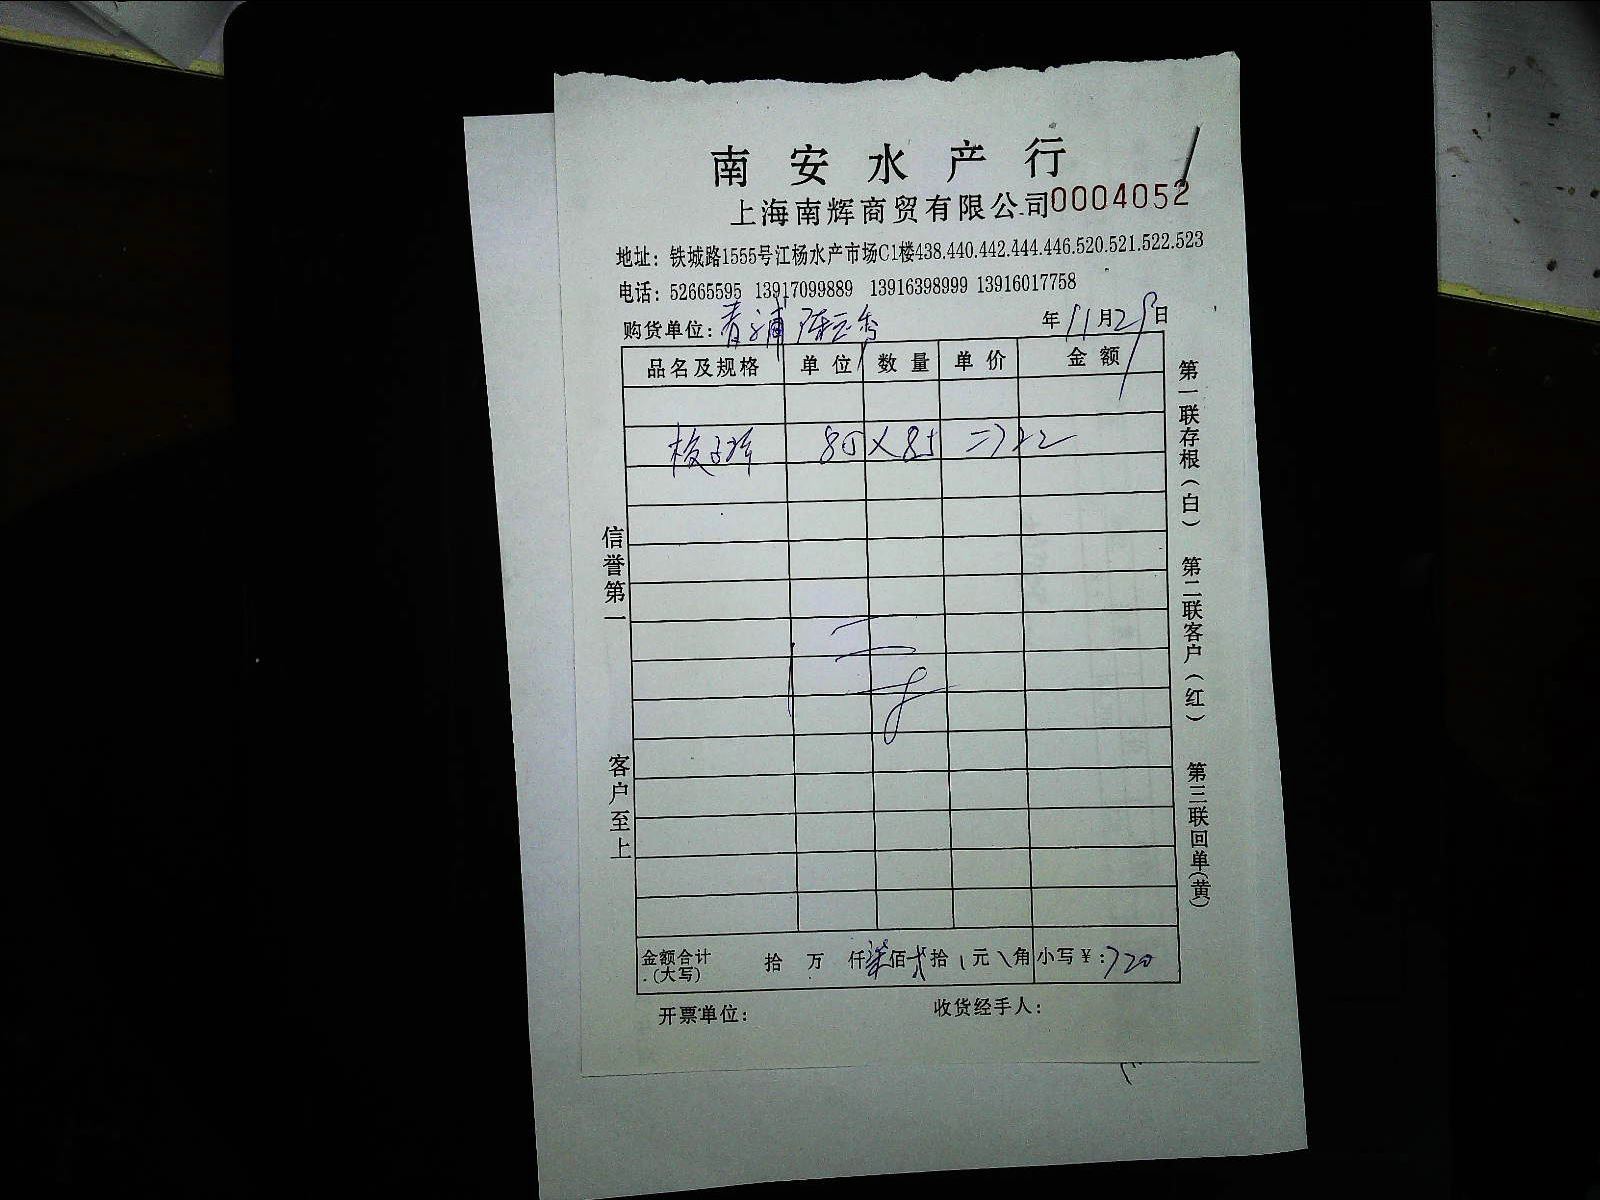 南安水产行
上海南辉商贸有限公司 0004052
地址：铁城路1555号江杨水产市场C1楼438.440.442.444.446.520.521.522.523
电话：52665595 13917099889 13916398999 13916017758
购货单位：青浦 年11月29日
品名及规格 单位 数量 单价 金额
梭子蟹 85 X 85 = 722
信誉第一
客户至上
第一联存根（白） 第二联客户（红） 第三联回单（黄）
金额合计（大写） 拾 万 仟柒佰贰拾 元 角 小写￥：720
开票单位： 收货经手人：